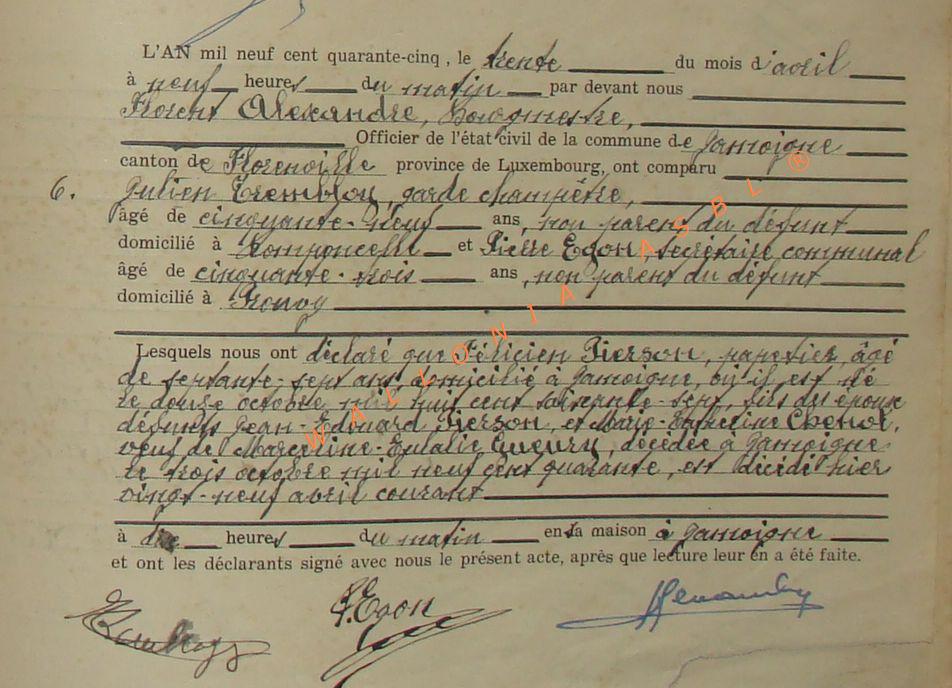 L'AN mil neuf cent quarante-cinq, le trente du mois d'avril
à neuf heures du matin par devant nous
Florent Alexandre, Bourgmestre,
Officier de l'état civil de la commune de Jamoigne
canton de Florenville province de Luxembourg, ont comparu
6. Julien Tremblou, garde champêtre,
âgé de cinquante-neuf ans, non parent du défunt
domicilié à Romponcelle et Pierre Egon, secrétaire communal
âgé de cinquante-trois ans, non parent du défunt
domicilié à Prouvy
Lesquels nous ont déclaré que Félicien Pierson, papetier, âgé
de septante-sept ans, domicilié à Jamoigne, où il est né
le douze octobre mil huit cent soixante-sept, fils des époux
défunts Jean-Edouard Pierson, et Marie-Catherine
veuf de Marceline-Eulalie Gueury, décédée à Jamoigne
le trois octobre mil neuf cent quarante, est décédé hier
vingt-neuf avril courant
à dix heures du matin en sa maison à Jamoigne
et ont les déclarants signé avec nous le présent acte, après que lecture leur en a été faite.
P. Egon
WALLONIA ASBL ®